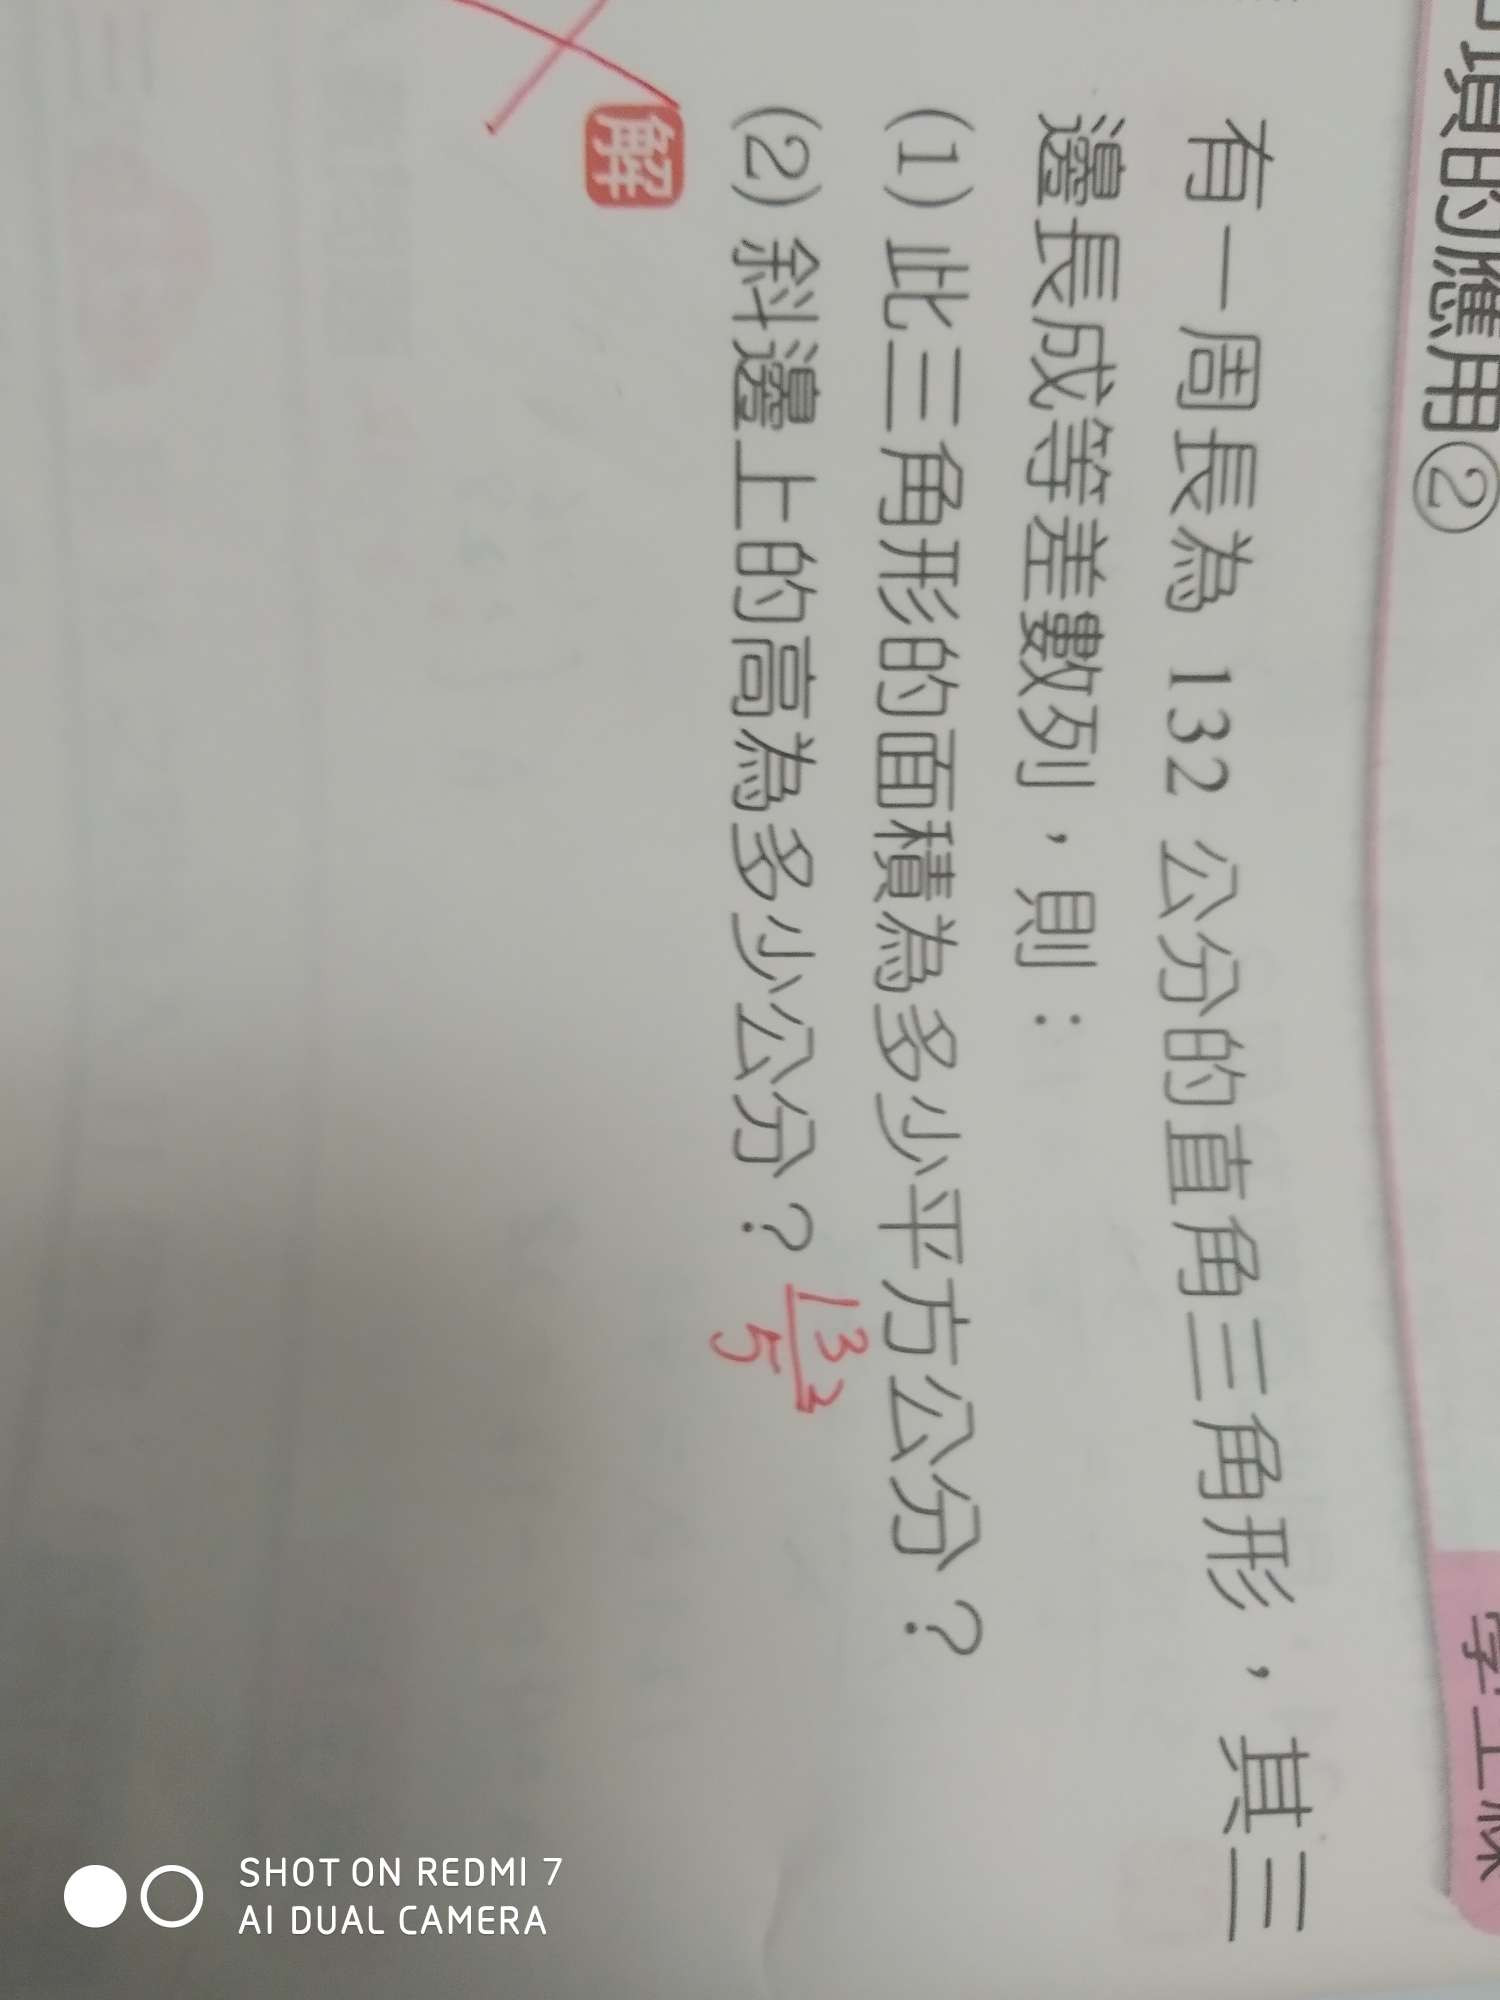 項的應用②
有一周長為 132 公分的直角三角形，其三
邊長成等差數列，則：
(1) 此三角形的面積為多少平方公分？
(2) 斜邊上的高為多少公分？
132
5
解
SHOT ON REDMI 7
AI DUAL CAMERA